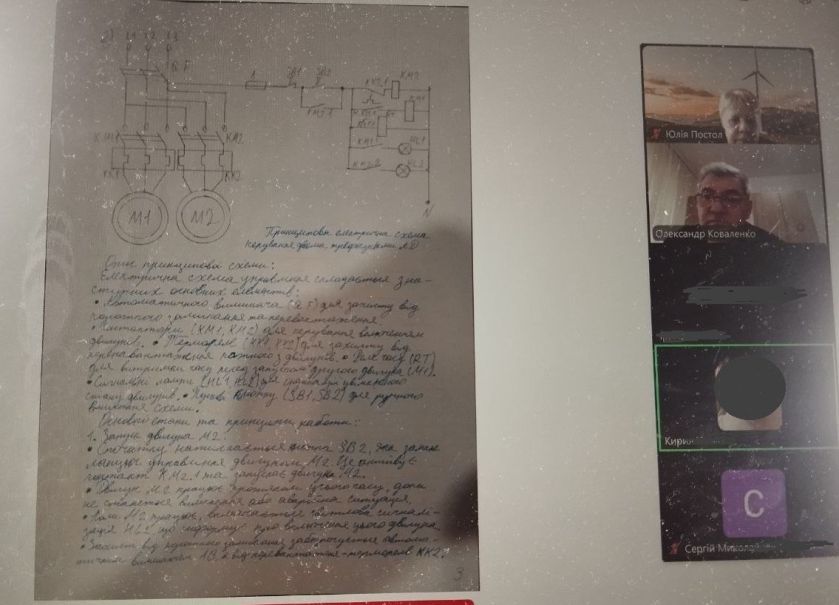 L1 L2 L3
QF
1 SB1 SB2
KM2.1
KM2
KM1
KM1 KM2
HL1
HL2
KK1 KK2
M1 M2
N
Принципова електрична схема
керування двома трифазними АД
Опис принципової схеми:
Електрична схема управління складається з на-
ступних основних елементів:
• Автоматичного вимикача (QF) для захисту від
короткого замикання та перевантаження
• Контактори (KM1, KM2) для керування включенням
двигунів. • Термореле (KK1, KK2) для захисту від
перевантаження кожного з двигунів. • Реле часу (RT)
для витримки часу перед запуском другого двигуна (M1).
• Сигнальні лампи (HL1, HL2) для
стану двигунів. • Пускові кнопки (SB1, SB2) для ручного
вмикання схеми.
Основні етапи та принципи роботи:
1. Запуск двигуна M2:
• Спочатку натискається кнопка SB2, яка замикає
управління двигуном M2. Це активує
контакт KM2.1 та запускає двигун M2.
• Двигун M2 працює протягом усього часу, доки
не станеться вимикання або аварійна ситуація.
• Коли M2 працює, включається світлова сигналі-
зація що сигналізує про включення цього двигуна
• Захист від короткого замикання забезпечується автома-
тичним вимикачем а від перевантаження - термореле KK2.
3
Юлія Постол
Олександр Коваленко
С
Сергій